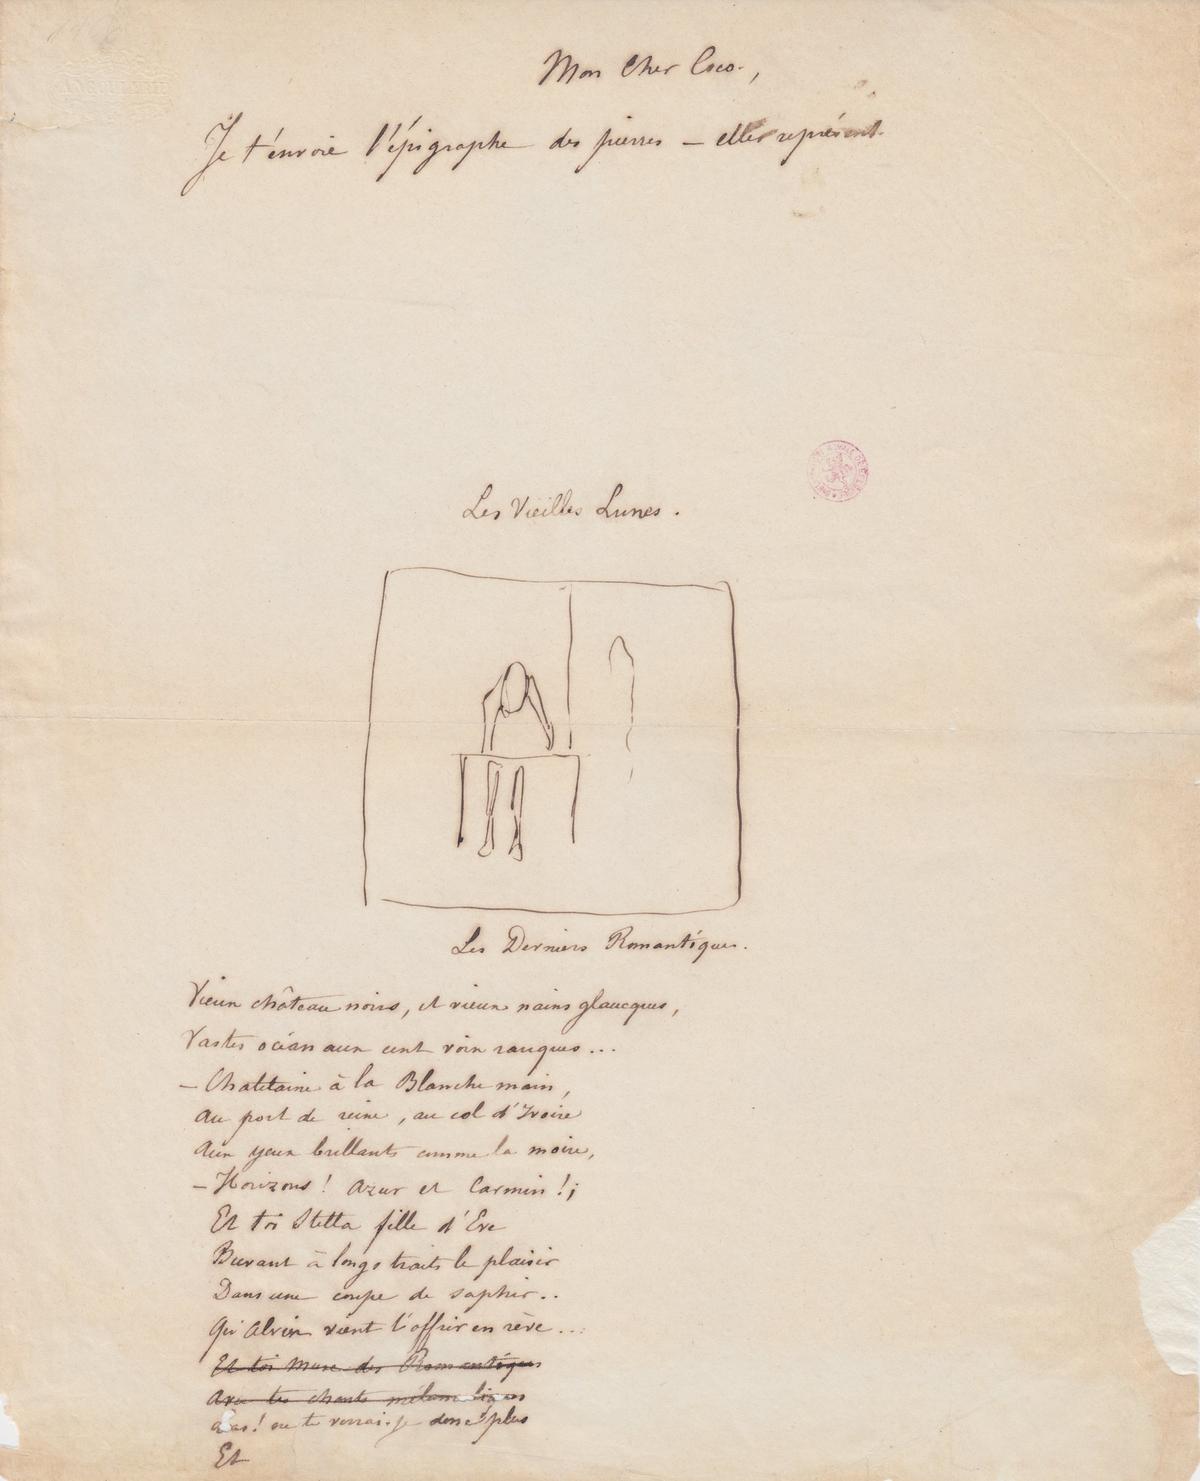 Mon Cher Coco.,
Je t'énvoie l'épigraphe des pierres — elles représent.
Les Vieilles Lunes.
Les Derniers Romantiques.
Vieux château noirs, et vieux nains glaucques,
Vastes océan aux cent voix rauques...
— Chatelaine à la Blanche main,
Au port de reine, au col d'Ivoire
Aux yeux brillants comme la moire,
— Horizons! Azur et Carmin!;
Et toi Stella fille d'Eve
Buvant à longs traits le plaisir
Dans une coupe de saphir..
Qu'Alvin vient t'offrir en rève...
Et toi Muse des Romantiques
Avec tes chants
ne te verrai-je donc plus
Et